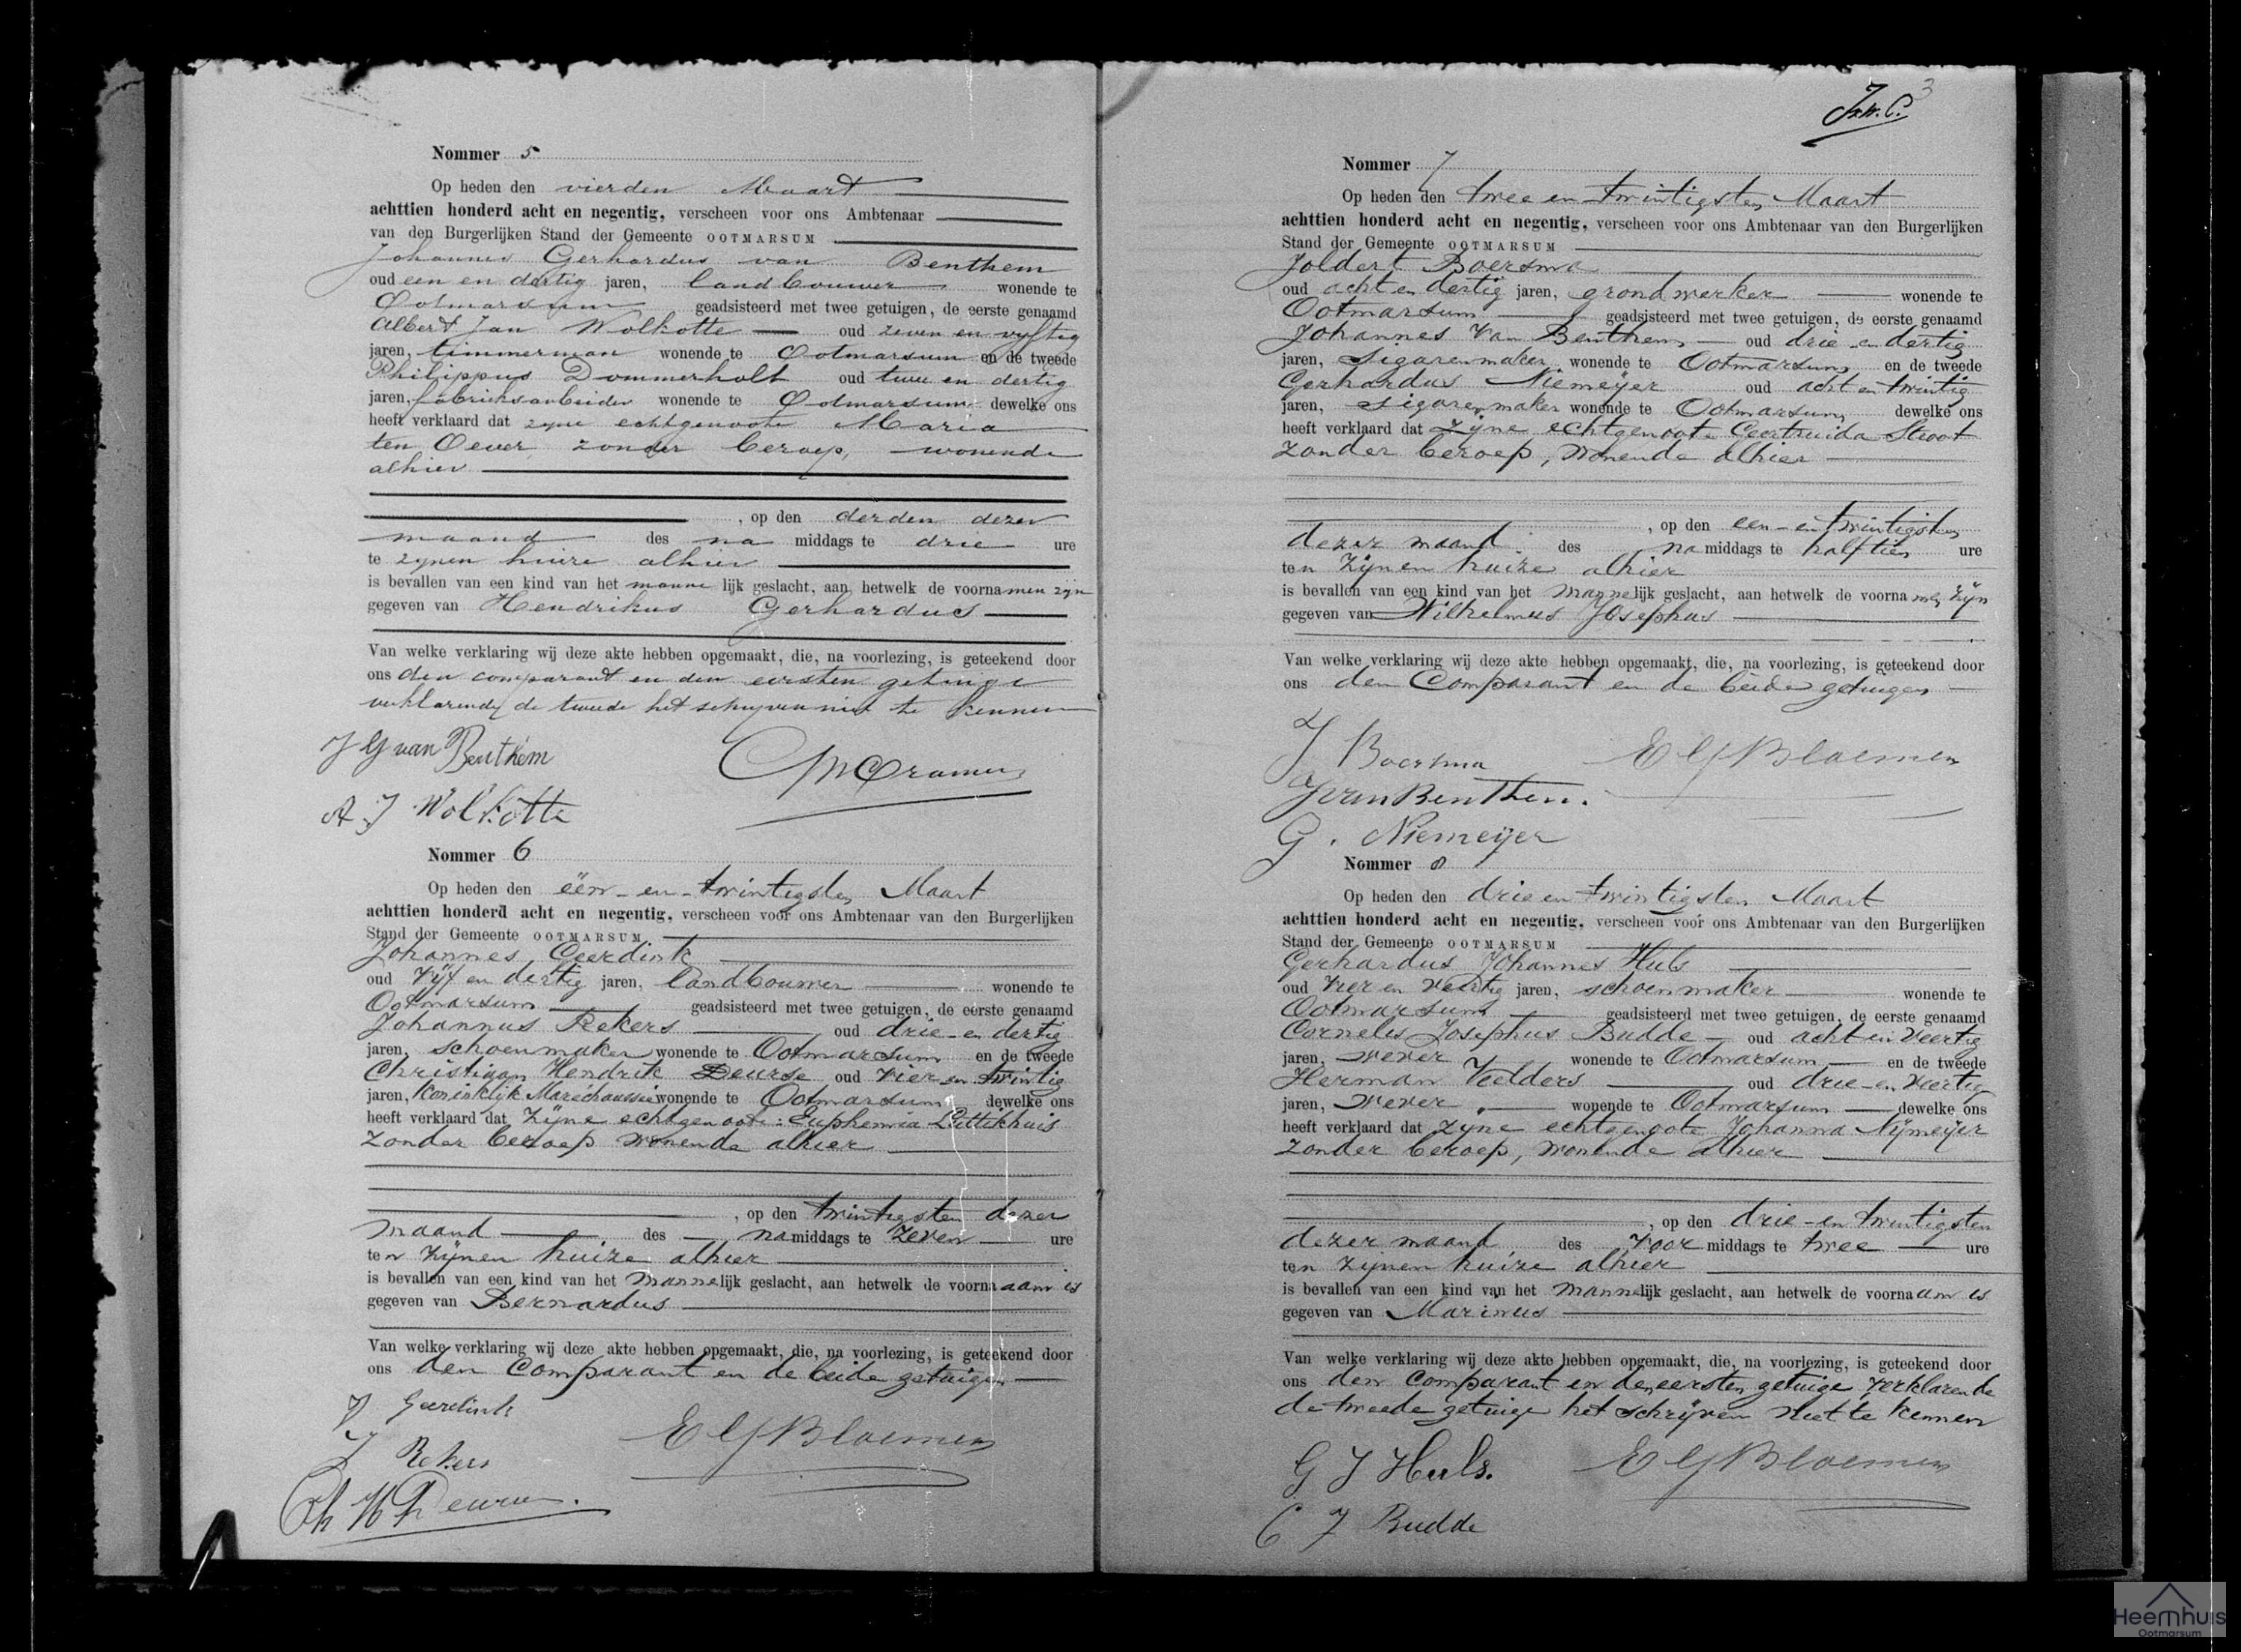 Nommer 5
Op heden den vierden Maart
achttien honderd acht en negentig, verscheen voor ons Ambtenaar
van den Burgerlijken Stand der Gemeente OOTMARSUM
Johannes Gerhardus van Benthem
oud een en dertig jaren, landbouwer wonende te
Ootmarsum geadsisteerd met twee getuigen, de eerste genaamd
Albert Jan Wolkotte oud zeven en vyftig
jaren, timmerman wonende te Ootmarsum en de tweede
Philippus Dommerholt oud twee en dertig
jaren, fabrieksarbeider wonende te Ootmarsum dewelke ons
heeft verklaard dat zyne echtgenoote Maria
ten Oever, zonder beroep, wonende
alhier
, op den derden dezer
maand des na middags te drie ure
te zynen huize alhier
is bevallen van een kind van het manne lijk geslacht, aan hetwelk de voornamen zyn
gegeven van Hendrikus Gerhardus
Van welke verklaring wij deze akte hebben opgemaakt, die, na voorlezing, is geteekend door
ons den comparant en den eersten getuige
verklarende de tweede het schryven niet te kennen
J G van Benthem
CMCramer
A. J Wolkotte
Nommer 6
Op heden den één-en-twintigsten Maart
achttien honderd acht en negentig, verscheen voor ons Ambtenaar van den Burgerlijken
Stand der Gemeente OOTMARSUM
Johannes Geerdink
oud vijf en dertig jaren, landbouwer wonende te
Ootmarsum geadsisteerd met twee getuigen, de eerste genaamd
Johannus Rekers oud drie-en dertig
jaren, schoenmaker wonende te Ootmarsum en de tweede
Christiaan Hendrik Deurse oud vier en twintig
jaren, Koninklijk Maréchaussie wonende te Ootmarsum dewelke ons
heeft verklaard dat zijne echtgenoote: Euphemia Luttikhuis
zonder beroep wonende alhier
, op den twintigsten dezer
maand des namiddags te zeven ure
ten zijnen huize alhier
is bevallen van een kind van het mannelijk geslacht, aan hetwelk de voornaam is
gegeven van Bernardus
Van welke verklaring wij deze akte hebben opgemaakt, die, na voorlezing, is geteekend door
ons den Comparant en de beide getuigen
J Geerdink
E G Bloemen
J Rekers
Ch H Deurse.
J.W.C. 3
Nommer 7
Op heden den twee en twintigsten Maart
achttien honderd acht en negentig, verscheen voor ons Ambtenaar van den Burgerlijken
Stand der Gemeente OOTMARSUM
Joldert Boersma
oud acht en dertig jaren, grondwerker wonende te
Ootmarsum geadsisteerd met twee getuigen, de eerste genaamd
Johannes Van Benthem oud drie en dertig
jaren, Sigarenmaker wonende te Ootmarsum en de tweede
Gerhardus Niemeijer oud acht en twintig
jaren, sigarenmaker wonende te Ootmarsum dewelke ons
heeft verklaard dat zijne echtgenoote Geertruida Stroot
zonder beroep, wonende alhier
, op den een-en twintigsten
dezer maand des namiddags te half tien ure
ten zijnen huize alhier
is bevallen van een kind van het mannelijk geslacht, aan hetwelk de voornamen zijn
gegeven van Wilhelmus Josephus
Van welke verklaring wij deze akte hebben opgemaakt, die, na voorlezing, is geteekend door
ons den Comparant en de beide getuigen
J Boersma
E G Bloemen
J van Benthem.
G. Niemeijer
Nommer 8
Op heden den drie en twintigsten Maart
achttien honderd acht en negentig, verscheen voor ons Ambtenaar van den Burgerlijken
Stand der Gemeente OOTMARSUM
Gerhardus Johannes Huls
oud vier en veertig jaren, schoenmaker wonende te
Ootmarsum geadsisteerd met twee getuigen, de eerste genaamd
Cornelis Josephus Budde oud acht en veertig
jaren, wever wonende te Ootmarsum en de tweede
Herman Veelders oud drie-en veertig
jaren, wever wonende te Ootmarsum dewelke ons
heeft verklaard dat zyne echtgenoote Johanna Nijmeijer
zonder beroep, wonende alhier
, op den drie-en twintigsten
dezer maand des voor middags te twee ure
ten zijnen huize alhier
is bevallen van een kind van het mannelijk geslacht, aan hetwelk de voornaam is
gegeven van Marinus
Van welke verklaring wij deze akte hebben opgemaakt, die, na voorlezing, is geteekend door
ons den comparant en den eersten getuige verklarende
de tweede getuige het schrijven niet te kennen
G J Huls.
E G Bloemen
C J Budde
Heemhuis
Ootmarsum